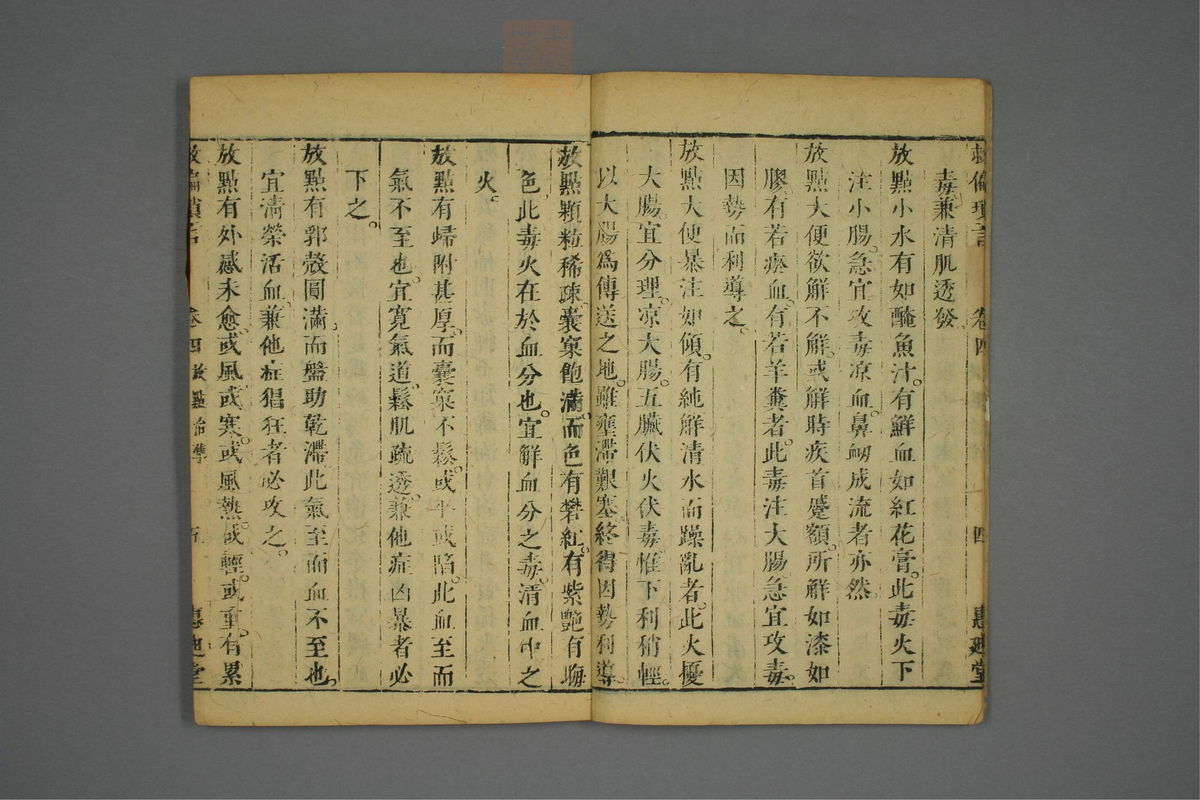 救偏瑣言 卷四 四 惠迪堂
毒兼清肌透發。
放點小水有如醃魚汁。有鮮血如紅花膏。此毒火下
注小腸。急宜攻毒凉血。鼻衂成流者亦然
放點大便欲解不解。或解時疾首蹙額。所解如漆如
膠。有若瘀血。有若羊糞者。此毒注大腸。急宜攻毒。
因勢而利導之。
放點大便暴注如傾。有純解清水而躁亂者。此火擾
大腸。宜分理。凉大腸。五臟伏火伏毒。惟下利稍輕。
以大腸爲傳送之地。雖壅滯艱塞。終得因勢利導。
放點顆粒稀疎。囊窠飽滿。而色有礬紅。有紫艷有晦
色。此毒火在於血分也。宜解血分之毒。清血中之
火。
放點有歸附甚厚。而囊窠不鬆。或平或陷。此血至而
氣不至也。宜寛氣道。鬆肌疏透。兼他症凶暴者必
下之。
放點有郭殼圓滿。而盤助乾滯。此氣至而血不至也。
宜清榮活血。兼他症猖狂者必攻之。
放點有外感未愈。或風或寒。或風熱。或輕。或重。有累
救偏瑣言 卷四 放點治準 惠迪堂